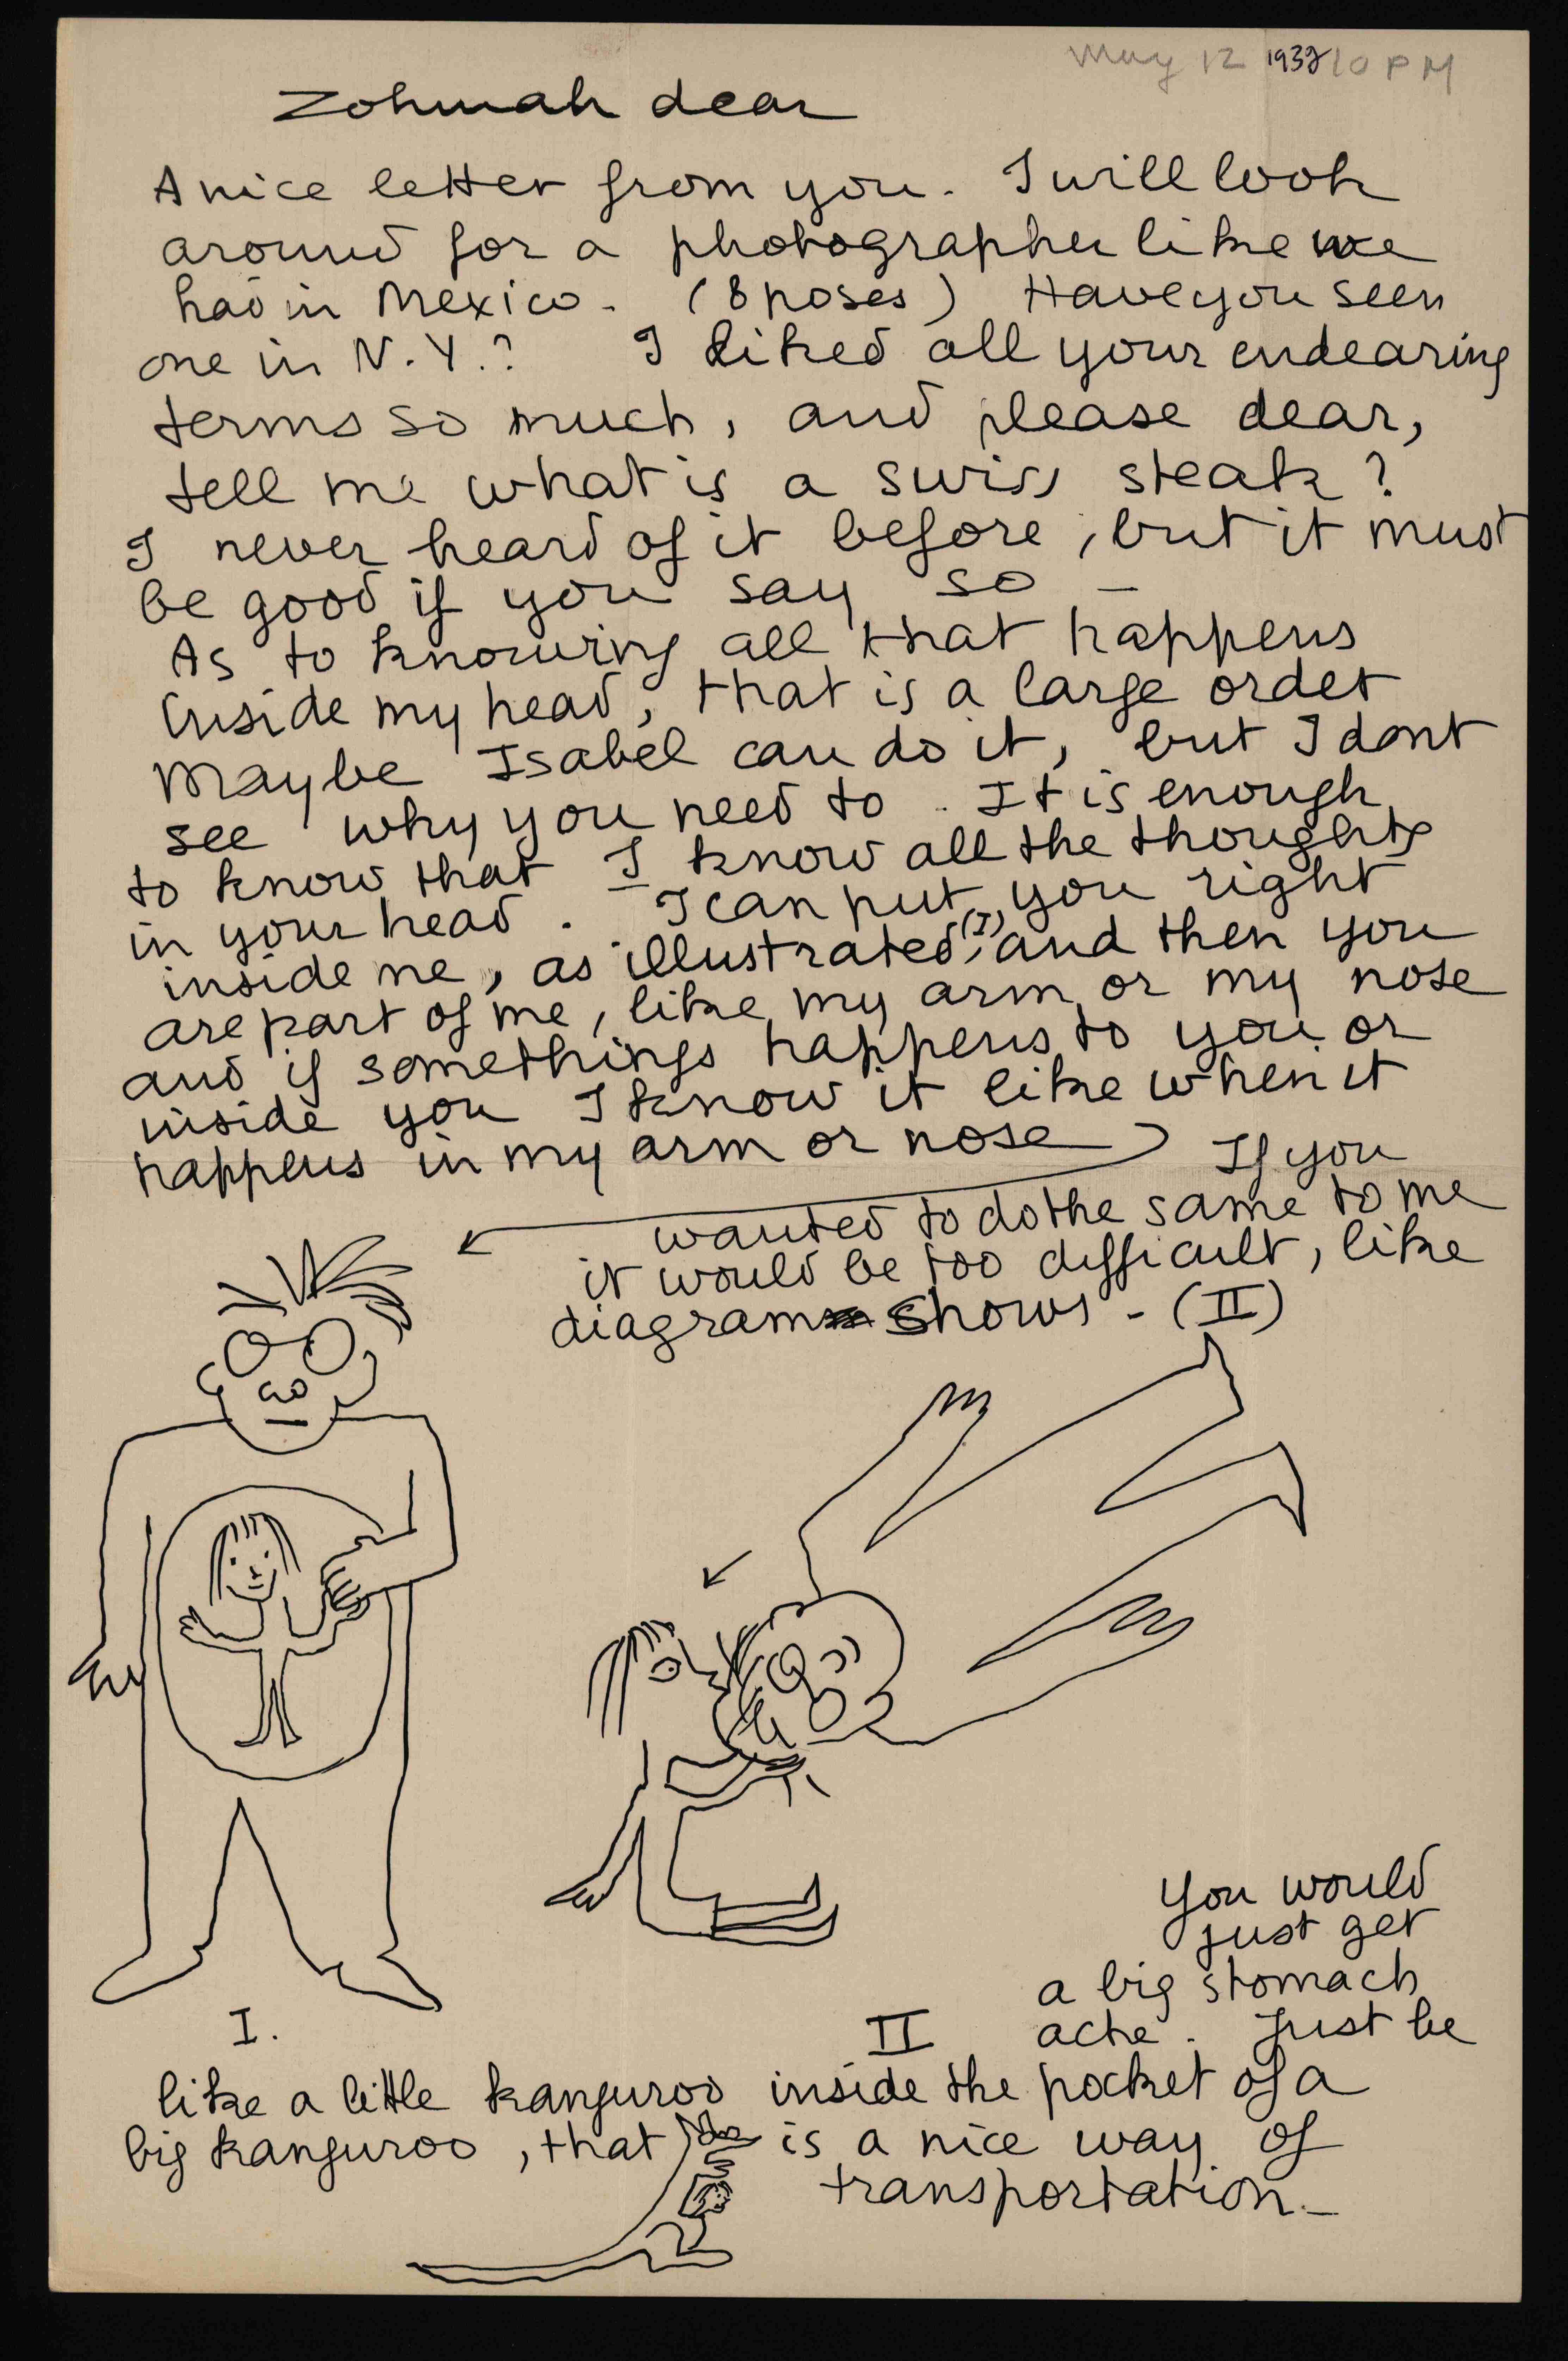 May 12 1932 10 PM
Zohmah dear
A nice letter from you. I will look
around for a photographer like we
had in Mexico. (8 poses) Have you seen
one in N.Y.? I liked all your endearing
terms so much, and please dear,
tell me what is a swiss steak?
I never heard of it before, but it must
be good if you say so —
As to knowing all that happens
inside my head, that is a large order
Maybe Isabel can do it, but I dont
see why you need to. It is enough
to know that I know all the thoughts
in your head. I can put you right
inside me, as illustrated (I), and then you
are part of me, like my arm or my nose
and if somethings happens to you or
inside you I know it like when it
happens in my arm or nose If you
wanted to do the same to me
it would be too difficult, like
diagram shows - (II)
you would
just get
a big stomach
I. II ache. Just be
like a little kanguroo inside the pocket of a
big kanguroo, that is a nice way of
transportation._